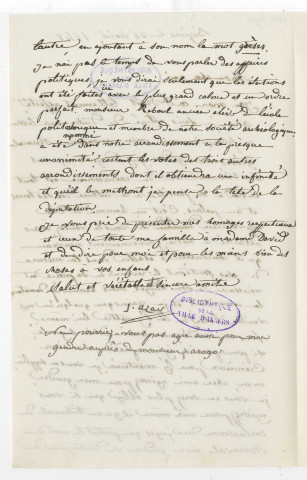 l'autre en ajoutant a son nom le mot
Je n'ai pas le temps de vous parler des affaires
politiques, je vous dirai seulement que les élections
ont été faites avec le plus grand calme et un ordre
parfait monsieur Reboul ancien élève de l'école
politecnique et membre de notre société archéologique
a été nommé dans notre arrondissement a la presque
unanimité, restent les votes des trois autres
arrondissements dont il obtiendra une infinité
et qui le mettront je pense, a la tete de la
députation.
Je vous prie de présenter mes homages respectueux
et ceux de toute ma famille a madame David
et de dire pour moi et pour les miens bien des
choses a vos enfans.
Salut et véritable et sincere amitié
J. Azaïs
Ne pourriez-vous pas agir aussi pour mon
gendre auprès de monsieur arago
BIBLIOTHEQUE
DE LA
VILLE D'ANGERS